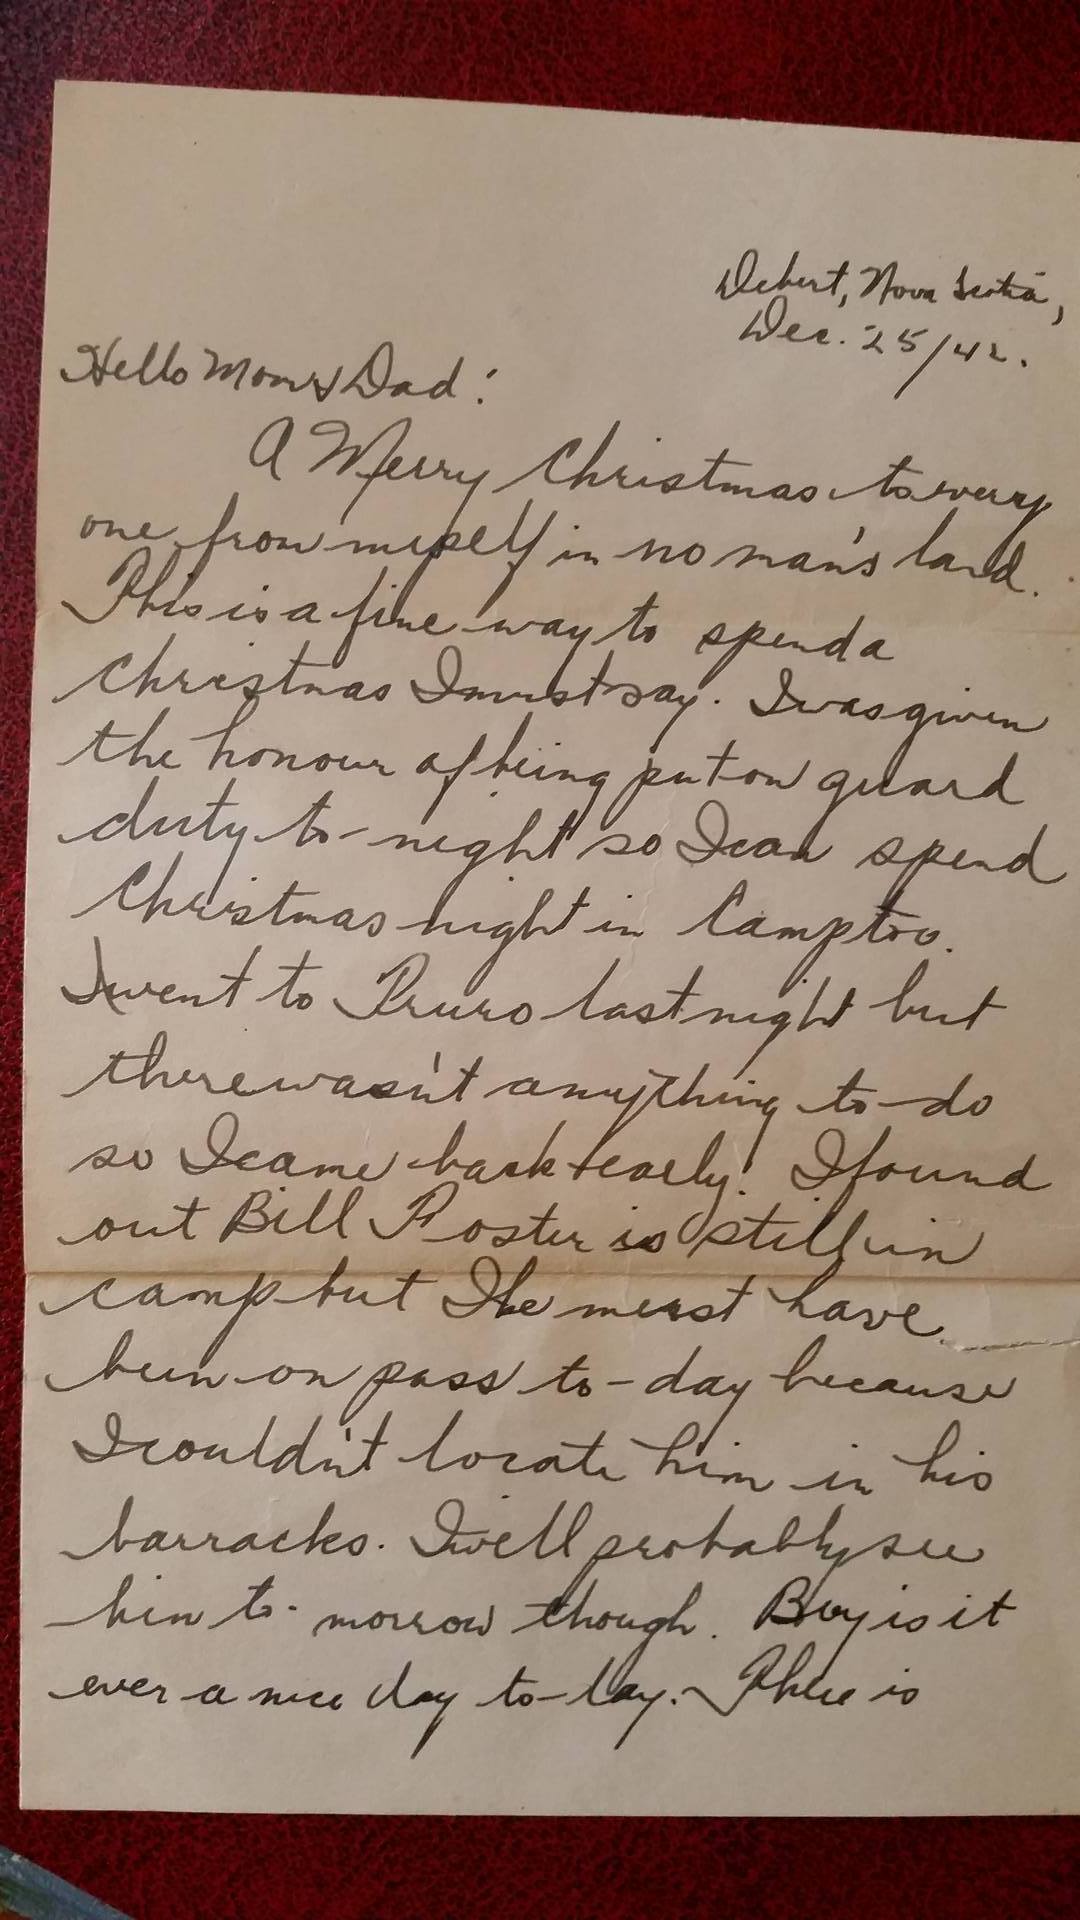 Debert, Nova Scotia,
Dec. 25/42.
Hello Mom & Dad:
A Merry Christmas to every
one from myself in no man's land.
This is a fine way to spend a
Christmas I must say. I was given
the honour of being put on guard
duty to-night so I can spend
Christmas night in Camp too.
I went to Truro last night but
there wasn't anything to do
so I came back early. I found
out Bill Foster is still in
camp but I he must have
been on pass to-day because
I couldn't locate him in his
barracks. I will probably see
him to-morrow though. Boy is it
ever a nice day to-day. There is